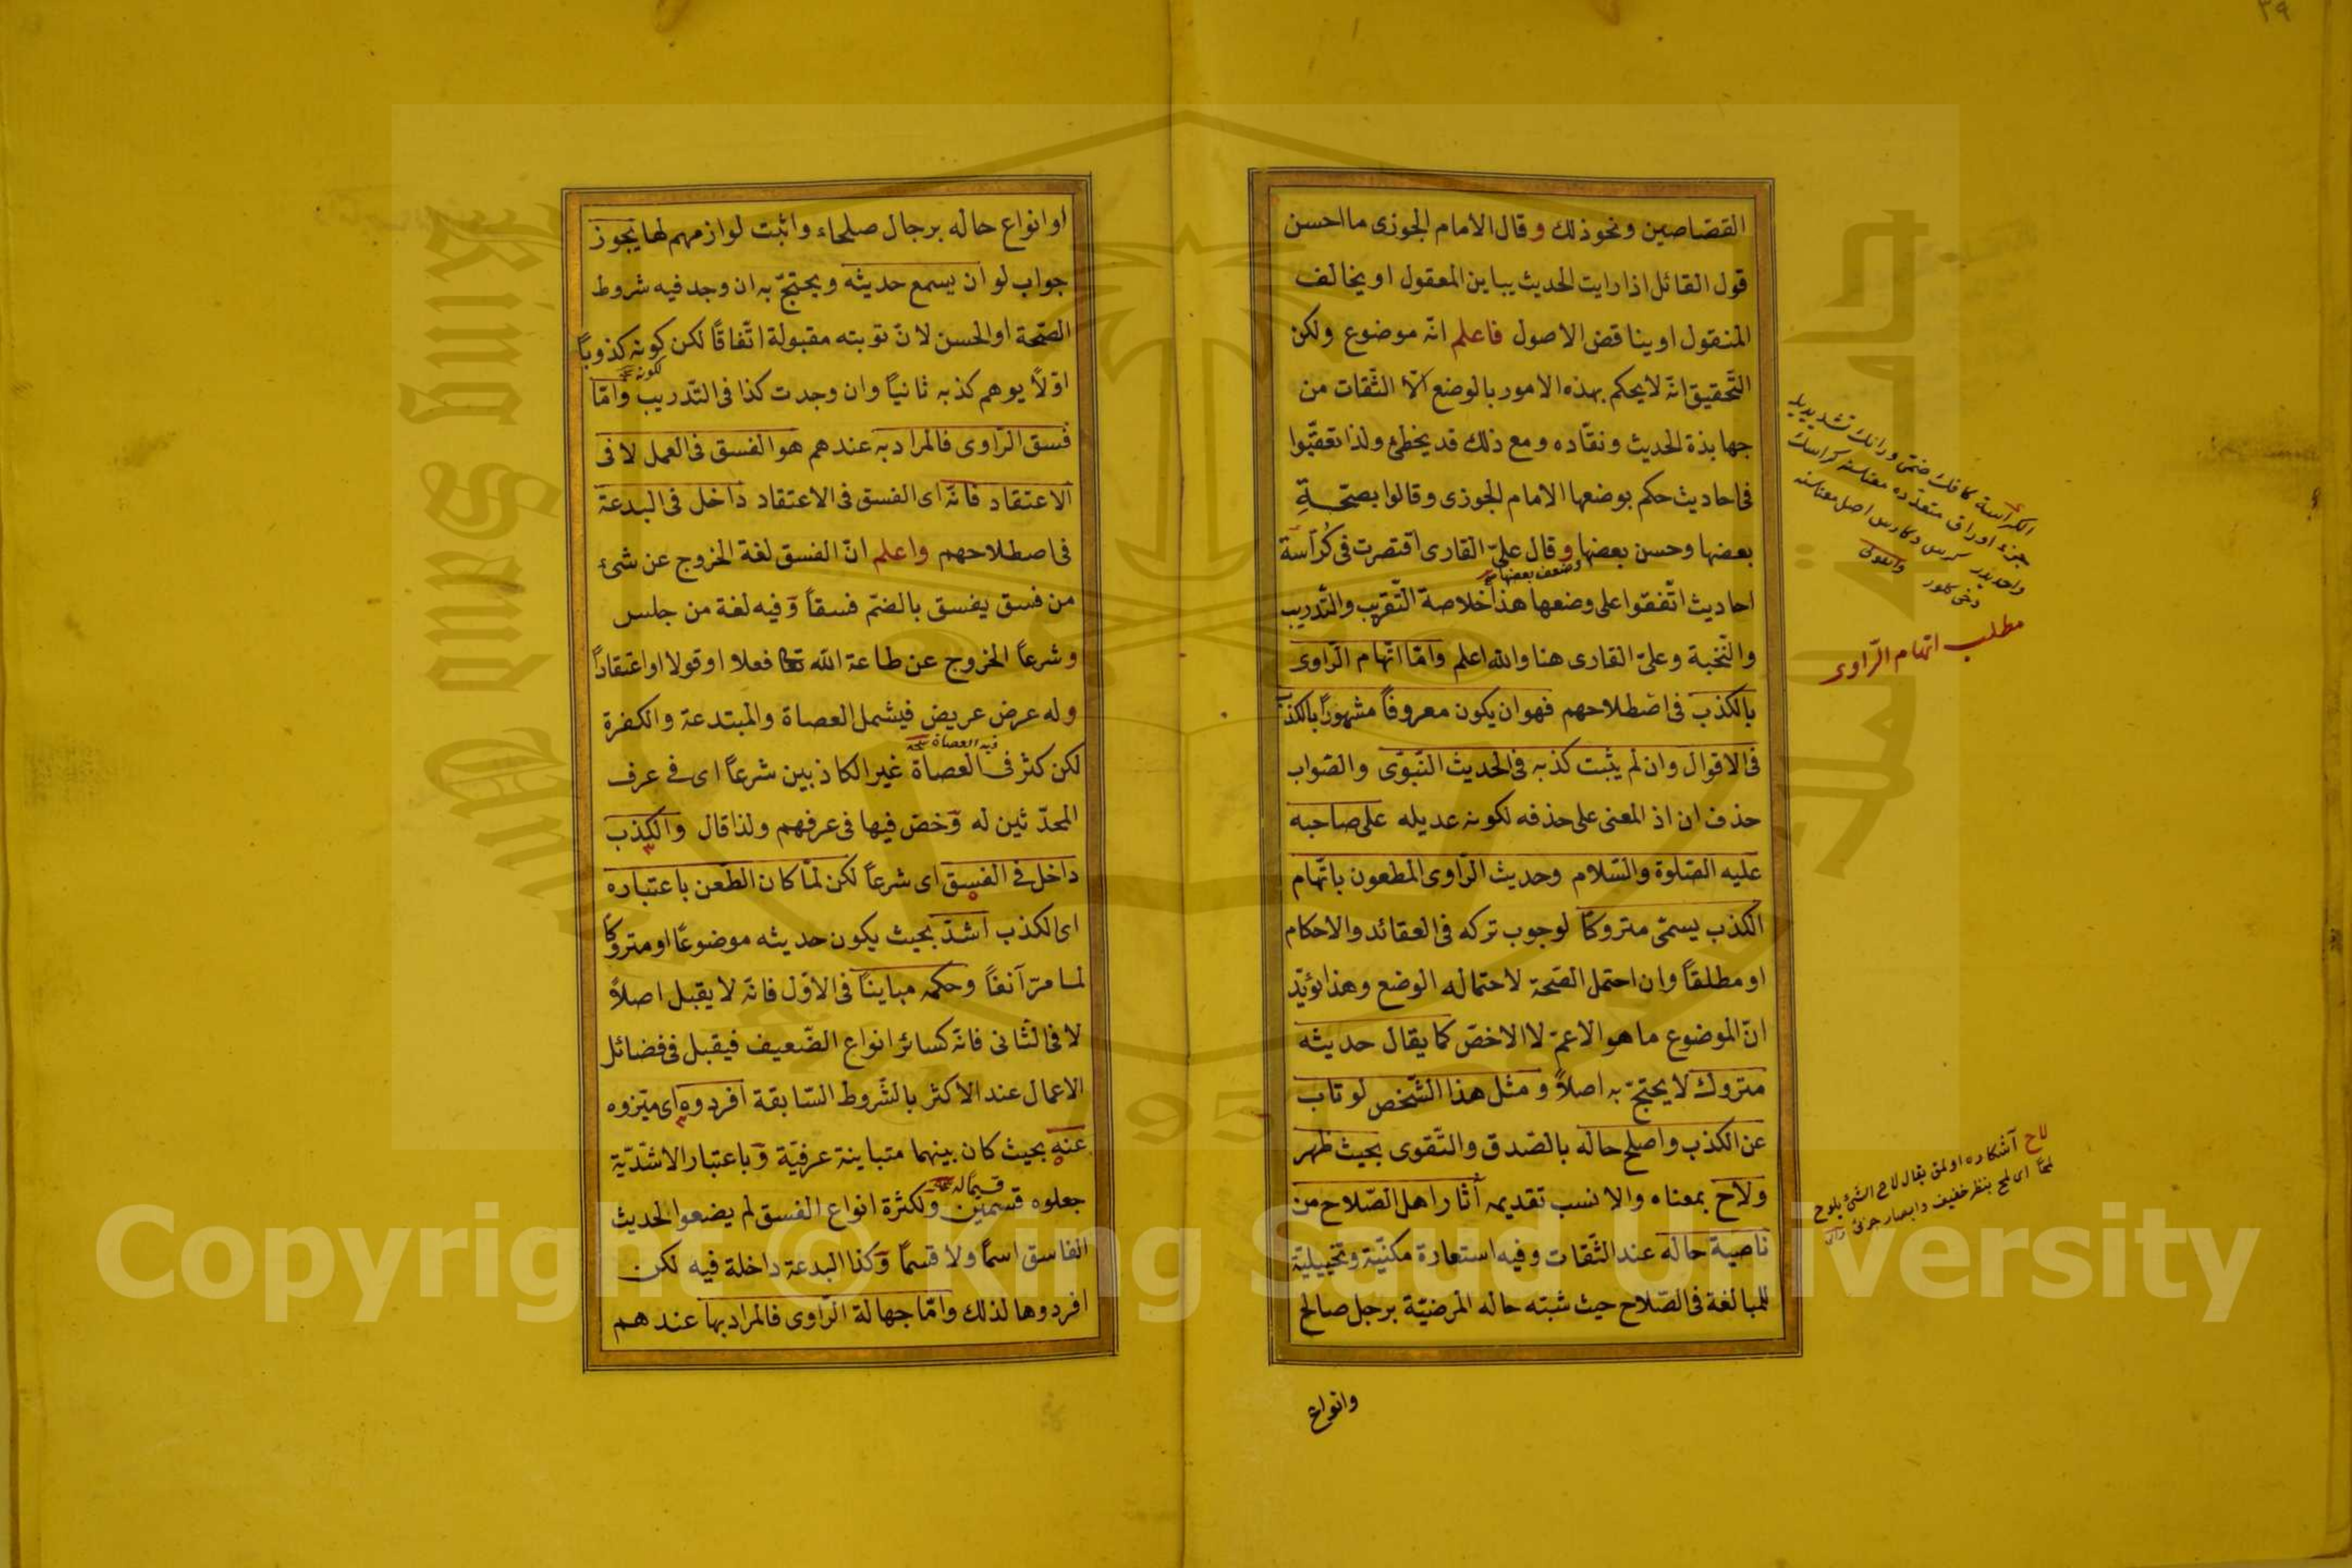 ٣٩
القصاصين ونحو ذلك وقال الامام الجوزى ما احسن
قول القائل اذا رايت الحديث يباين المعقول او يخالف
المنقول او يناقض الاصول فاعلم انّه موضوع ولكن
التّحقيق انّه لا يحكم بهذه الامور بالوضع الّا الثّقات من
جهابذة الحديث ونقّاده ومع ذلك قد يخطئ ولذا تعقّبوا
فى احاديث حكم بوضعها الامام الجوزى وقالوا بصحّـة
بعضها وحسن بعضها وقال علىّ القارى اقتصرت فى كُرّاسة
وضعف بعضها
احاديث اتّفقوا على وضعها هذا خلاصة التّقريب والتّدريب
والنّخبة وعلىّ القارى هنا والله اعلم وامّا اتّهام الرّاوى
بالكذب فى اصطلاحهم فهو ان يكون معروفاً مشهورًا بالكذب
فى الاقوال وان لم يثبت كذبه فى الحديث النّبوّى والصّواب
حذف ان اذ المعنى على حذفه لكونه عديله على صاحبه
عليه الصّلوة والسّلام وحديث الرّاوى المطعون باتّهام
الكذب يسمّى متروكًا لوجوب تركه فى العقائد والاحكام
او مطلقاً وان احتمل الصّحة لاحتماله الوضع وهذا يؤيّد
انّ الموضوع ما هو الاعمّ لا الاخصّ كما يقال حديثه
متروك لا يحتجّ به اصلاً ومثل هذا الشّخص لو تاب
عن الكذب واصلح حاله بالصّدق والتّقوى بحيث ظهر
ولاح بمعناه والانسب تقديمه أثار اهل الصّلاح من
ناصية حاله عند الثّقات وفيه استعارة مكنيّة وتخييليّة
للمبالغة فى الصّلاح حيث شبّه حاله المرضيّة برجل صالح
وانواع
الكرّاسة كافك ضمّى ورانك تشديديله
جزء اوراق متعدّده معناسنه كراسك
واحديدر كرس وكارس اصل معناسنه
دخى كلور وانقولى
مطلب اتّهام الرّاوى
لاح آشكاره اولمق يقال لاح الشئ يلوح
لمحًا اى لمح بنظر خفيف وابصار جزئ
او انواع حاله برجال صلحاء واثبت لوازمهم لها يجوز
جواب لو ان يسمع حديثه ويحتجّ به ان وجد فيه شروط
الصّحة او الحسن لانّ توبته مقبولة اتّفاقًا لكن كونه كذوباً
لكونه
اوّلاً يوهم كذبه ثانيًا وان وجدت كذا فى التّدريب وامّا
فسق الرّاوى فالمراد به عندهم هو الفسق فى العمل لا فى
الاعتقاد فانّه اى الفسق فى الاعتقاد داخل فى البدعة
فى اصطلاحهم واعلم انّ الفسق لغة الخروج عن شئ
من فسق يفسق بالضمّ فسقاً وفيه لغة من جلس
وشرعاً الخروج عن طاعة الله تعا فعلا او قولا او اعتقاداً
وله عرض عريض فيشمل العصاة والمبتدعة والكفرة
فيه العصاة نسخه
لكن كثر فى العصاة غير الكاذبين شرعاً اى فى عرف
المحدّثين له وخصّ فيها فى عرفهم ولذا قال والكذب
داخل فى الفسق اى شرعاً لكن لمّا كان الطّعن باعتباره
اى الكذب اشدّ بحيث يكون حديثه موضوعًا او متروكًا
لما مرّ آنفاً وحكمه مباينًا فى الاوّل فانّه لا يقبل اصلاً
لا فى الثّانى فانّه كسائر انواع الضّعيف فيقبل فى فضائل
الاعمال عند الاكثر بالشّروط السّابقة افردوه اى ميّزوه
عنه بحيث كان بينهما متباينة عرفيّة وباعتبار الاشدّيّة
قسيمًا له
جعلوه قسمين ولكثرة انواع الفسق لم يضعوا لحديث
الفاسق اسمًا ولا قسمًا وكذا البدعة داخلة فيه لكن
افردوها لذلك وامّا جهالة الرّاوى فالمراد بها عندهم
جامعة الملك سعود
King Saud University
1957
Copyright © King Saud University